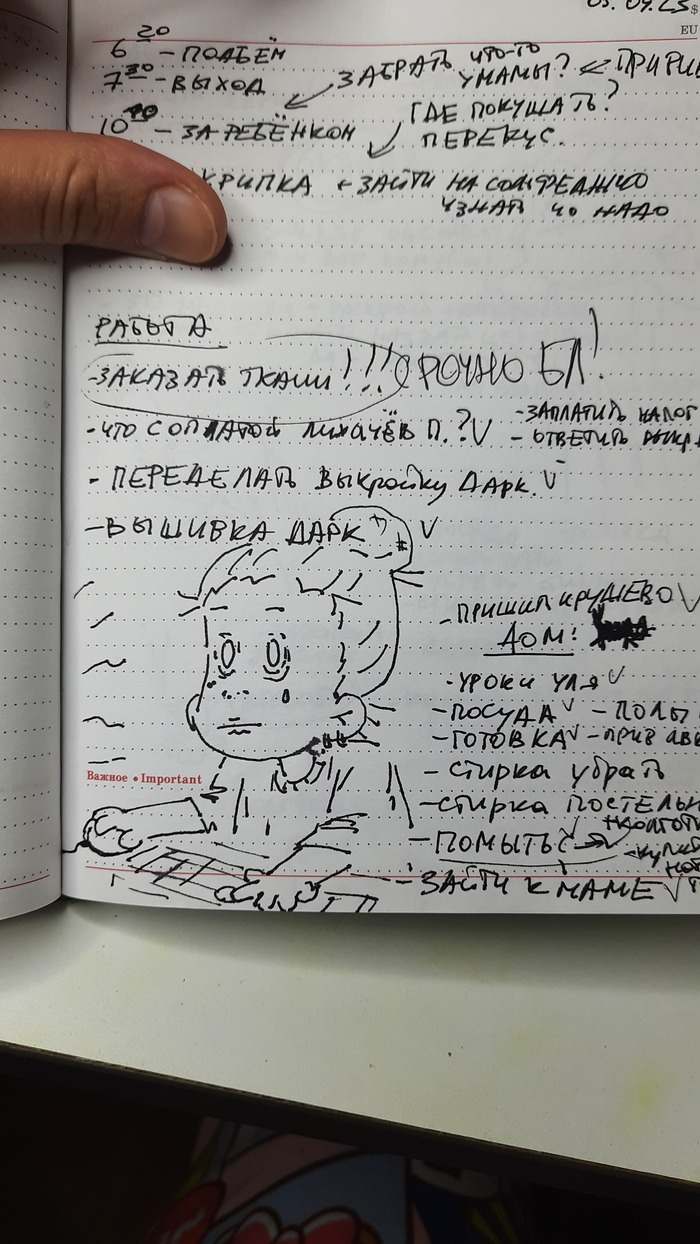 $
EU
6 20 - ПОДЬЁМ
7 30 - ВЫХОД
ЗАБРАТЬ ЧТО-ТО У МАМЫ?
10 - ЗА РЕБЁНКОМ
ГДЕ ПОКУШАТЬ?
ПЕРЕКУС.
КРИПКА + ЗАЙТИ НА СОЛЬФЕДЖИО
УЗНАТЬ ЧО НАДО
РАБОТА
-ЗАКАЗАТЬ ТКАНИ!!! СРОЧНО БЛ!
-ЧТО С ОПЛАТОЙ ЛИХАЧЁВ П.? V
-ЗАПЛАТИТЬ НАЛОГ
- ОТВЕТИТЬ
- ПЕРЕДЕЛАТЬ ВЫКРОЙКУ ДАРК. V
-ВЫШИВКА ДАРК V
-ПРИШИЛ КРУЖЕВО V
ДОМ:
-УРОКИ УЛЯ V
-ПОСУДА V - ПОЛЫ
-ГОТОВКА V
- СТИРКА УБРАТЬ
-СТИРКА ПОСТЕЛЬН
-ПОМЫТЬ
- ЗАЙТИ К МАМЕ V
Важное • Important